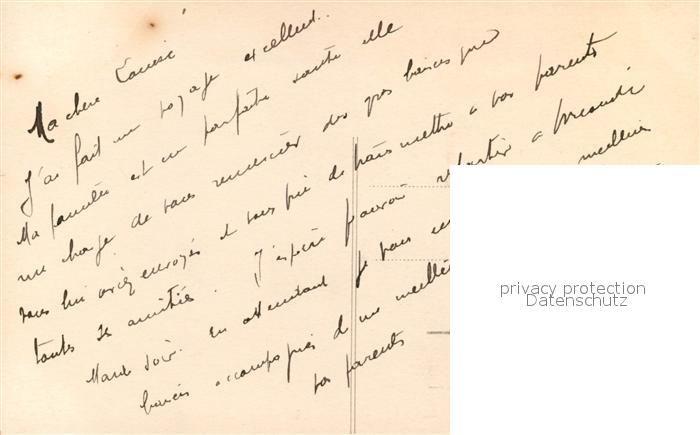 Ma chère Louise
J'ai fait un voyage excellent.
Ma famille est en parfaite santé elle
me charge de vous remercier des gros baisers que
vous lui avez envoyés et vous prie de transmettre à vos parents
toutes ses amitiés. J'espère pouvoir à
Mardi soir. En attendant je vous
baisers accompagnés de mes meilleurs
vos parents
meilleurs
privacy protection
Datenschutz